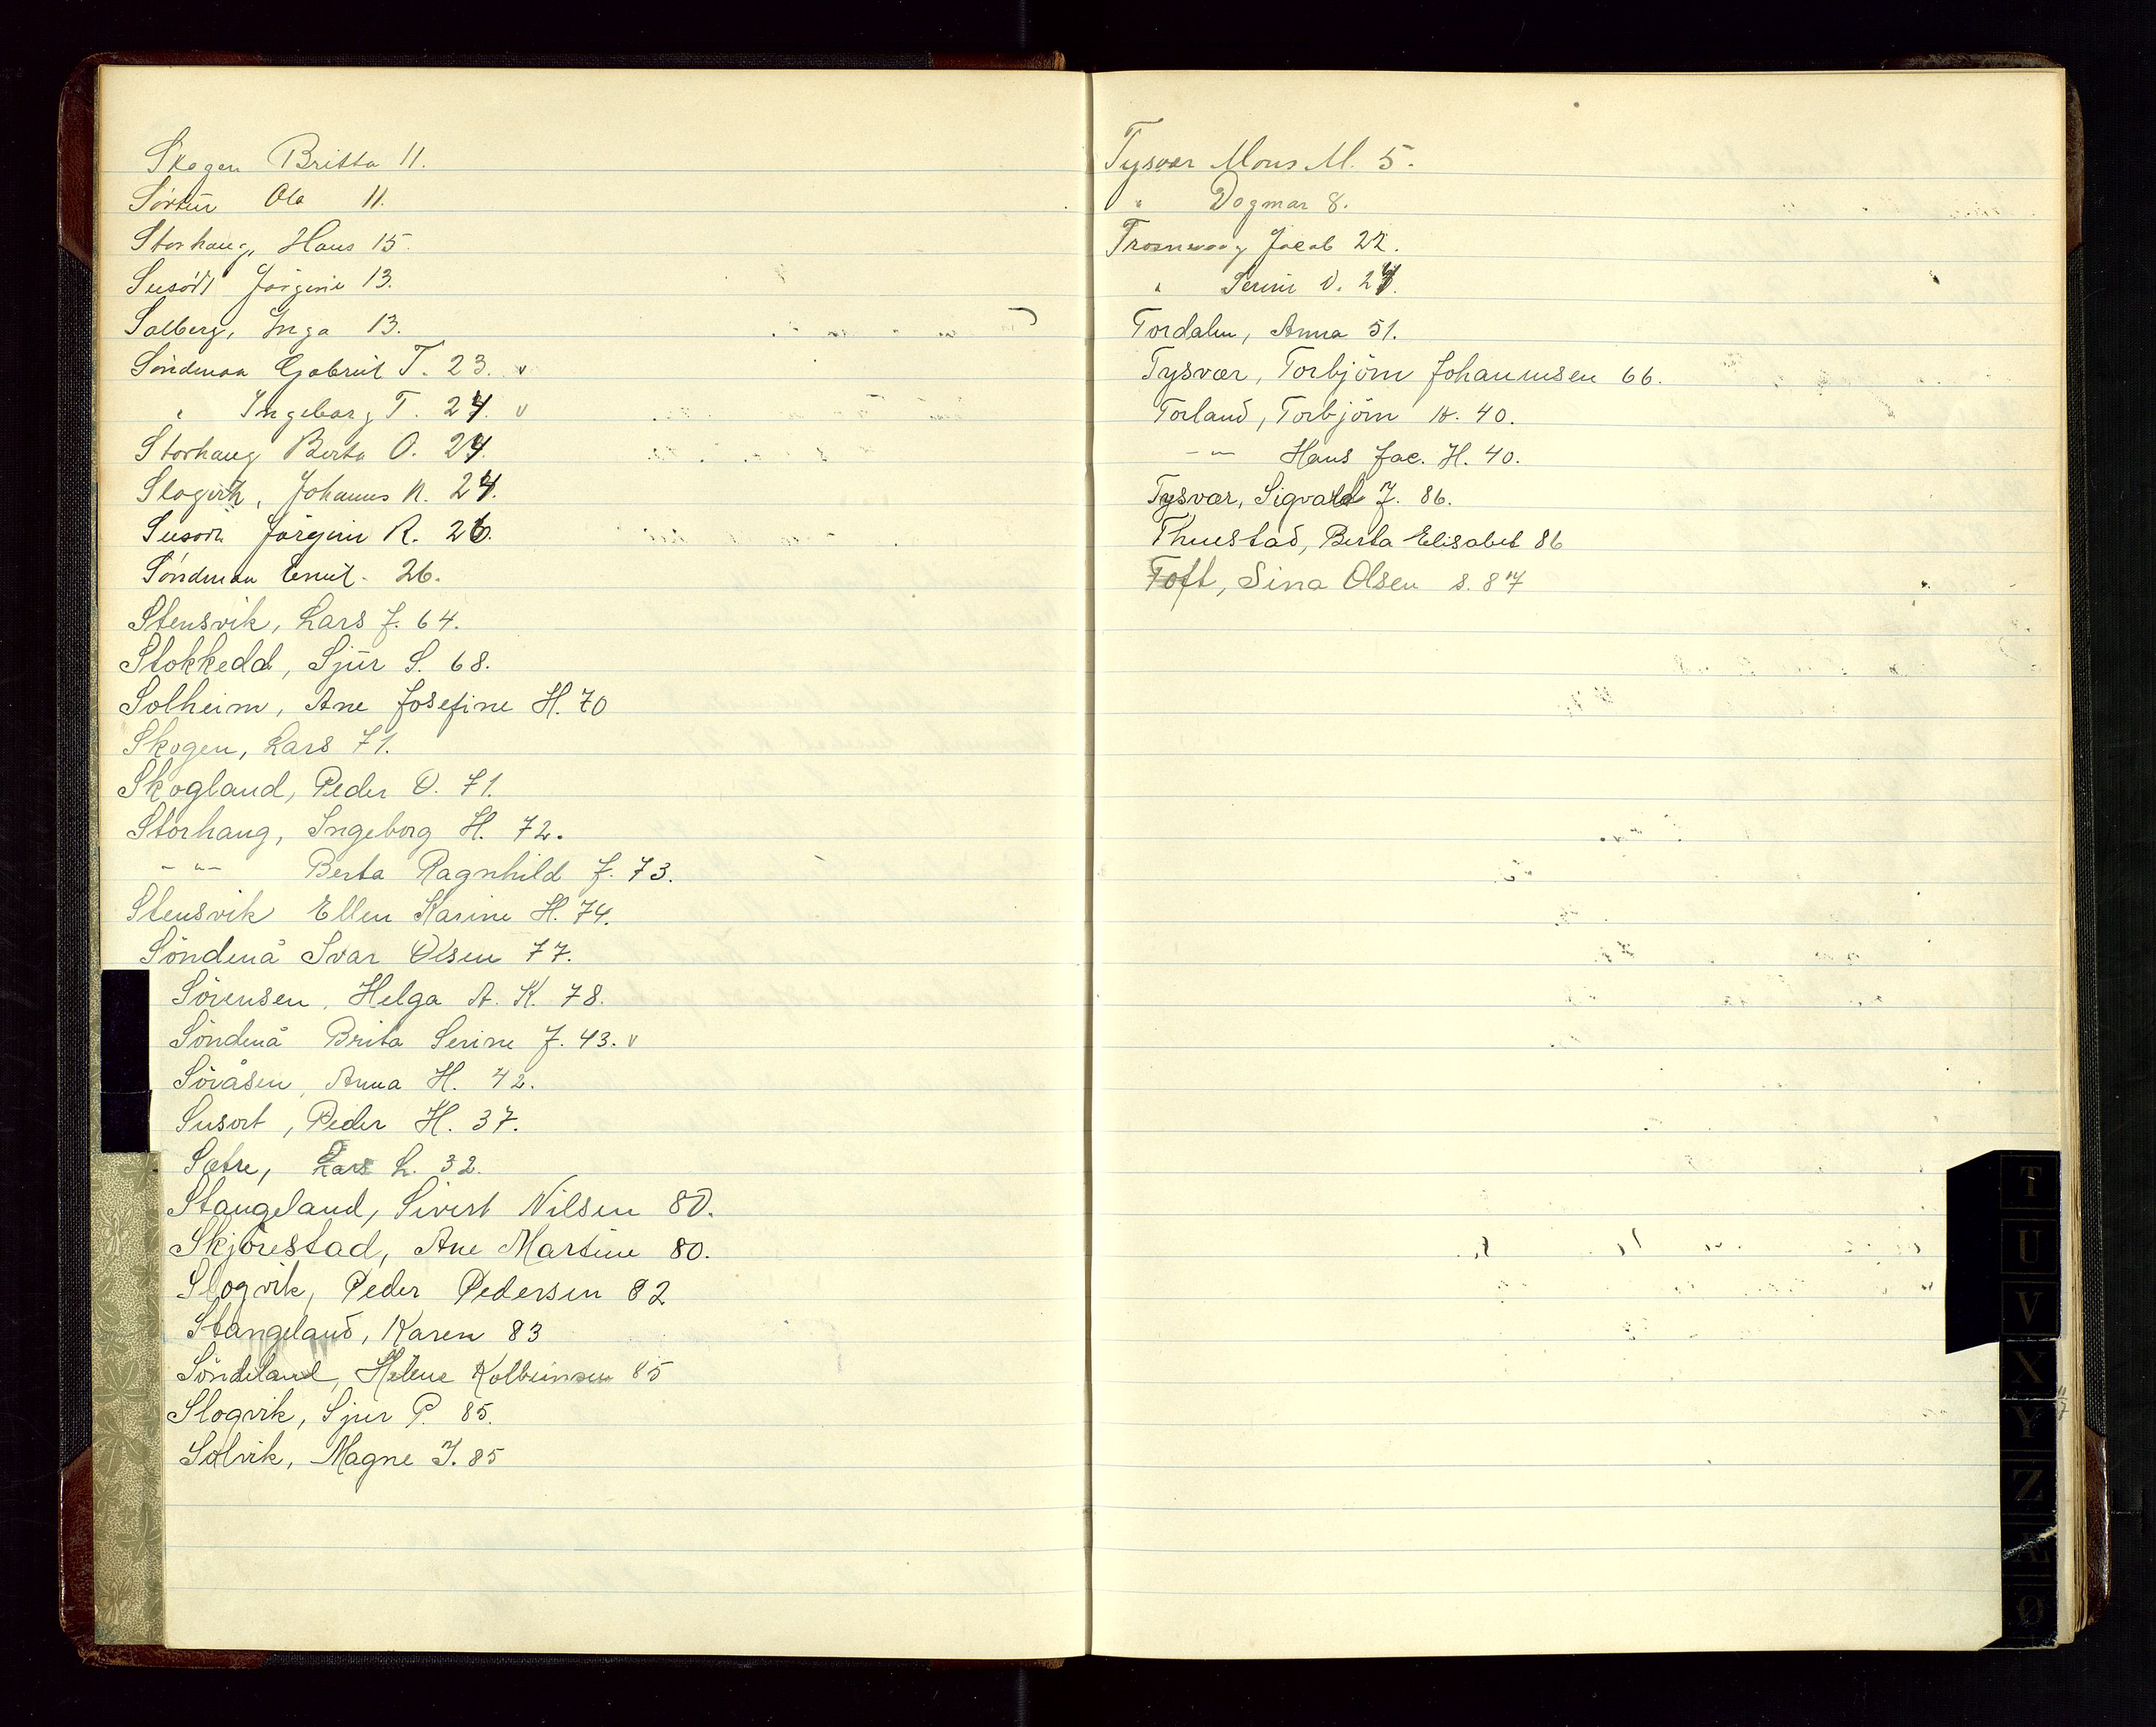 Skogen Britta 11.
Sörtün Ola 11.
Storhaug, Hans 15.
Susört Jörgine 13.
Solberg, Inga 13.
Söndenaa Gabriel T. 23. v
" Ingeborg T. 24. v
Storhaug Berta O. 24.
Slogvik, Johannes N. 24.
Susort Jörgine R. 26.
Söndenaa Emil. 26.
Stensvik, Lars J. 64.
Stokkedal, Sjür S. 68.
Solheim, Ane Josefine H. 70
Skogen, Lars 71.
Skogland, Peder O. 71.
Storhaug, Ingeborg H. 72.
- " - Berta Ragnhild J. 73.
Stensvik Ellen Karine H. 74.
Söndenå Ivar Olsen 77.
Sörensen, Helga A. K. 78.
Söndenå Brita Serine J. 43. v
Söråsen, Anna H. 42.
Susort, Peder H. 37.
Sætre, Lars L. 32.
Stangeland, Sivert Nilsen 80.
Skjörestad, Ane Martine 80.
Slogvik, Peder Pedersen 82
Stangeland, Karen 83
Söndeland, Helene Kolbeinsen 85
Slogvik, Sjur P. 85.
Solvik, Magne J. 85
Tysvær Mons M. 5.
" Dagmar 8.
Jacob 22.
" Serine O. 24.
Tordalen, Anna 51.
Tysvær, Torbjörn Johannesen 66.
Torland, Torbjörn K. 40.
- " - Hans Jac. H. 40.
Tysvær, Sigvald J. 86.
Thuestad, Berta Elisabet 86
Toft, Sina Olsen s. 87
T
U
V
X
Y
Z
Æ
Ø